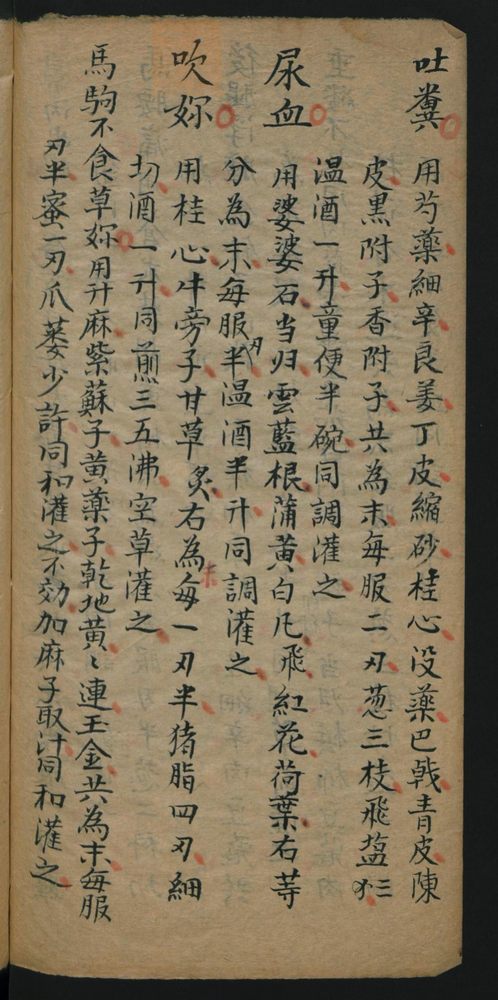 吐糞 用芍藥細辛良姜丁皮縮砂桂心没藥巴戟青皮陳
皮黑附子香附子共為末每服二刄葱三枝飛盐三
温酒一升童便半碗同調灌之
尿血 用婆婆石当归雲藍根蒲黄白凡飛紅花荷葉右等
分為末每服半刄温酒半升同調灌之
吹妳 用桂心牛旁子甘草炙右為末每一刄半猪脂四刄細
切酒一升同煎三五沸空草灌之
馬駒不食草妳用升麻紫蘇子黄藥子乾地黄〻連玉金共為末每服
刄半蜜一刄爪蒌少許同和灌之不効加麻子取汁同和灌之